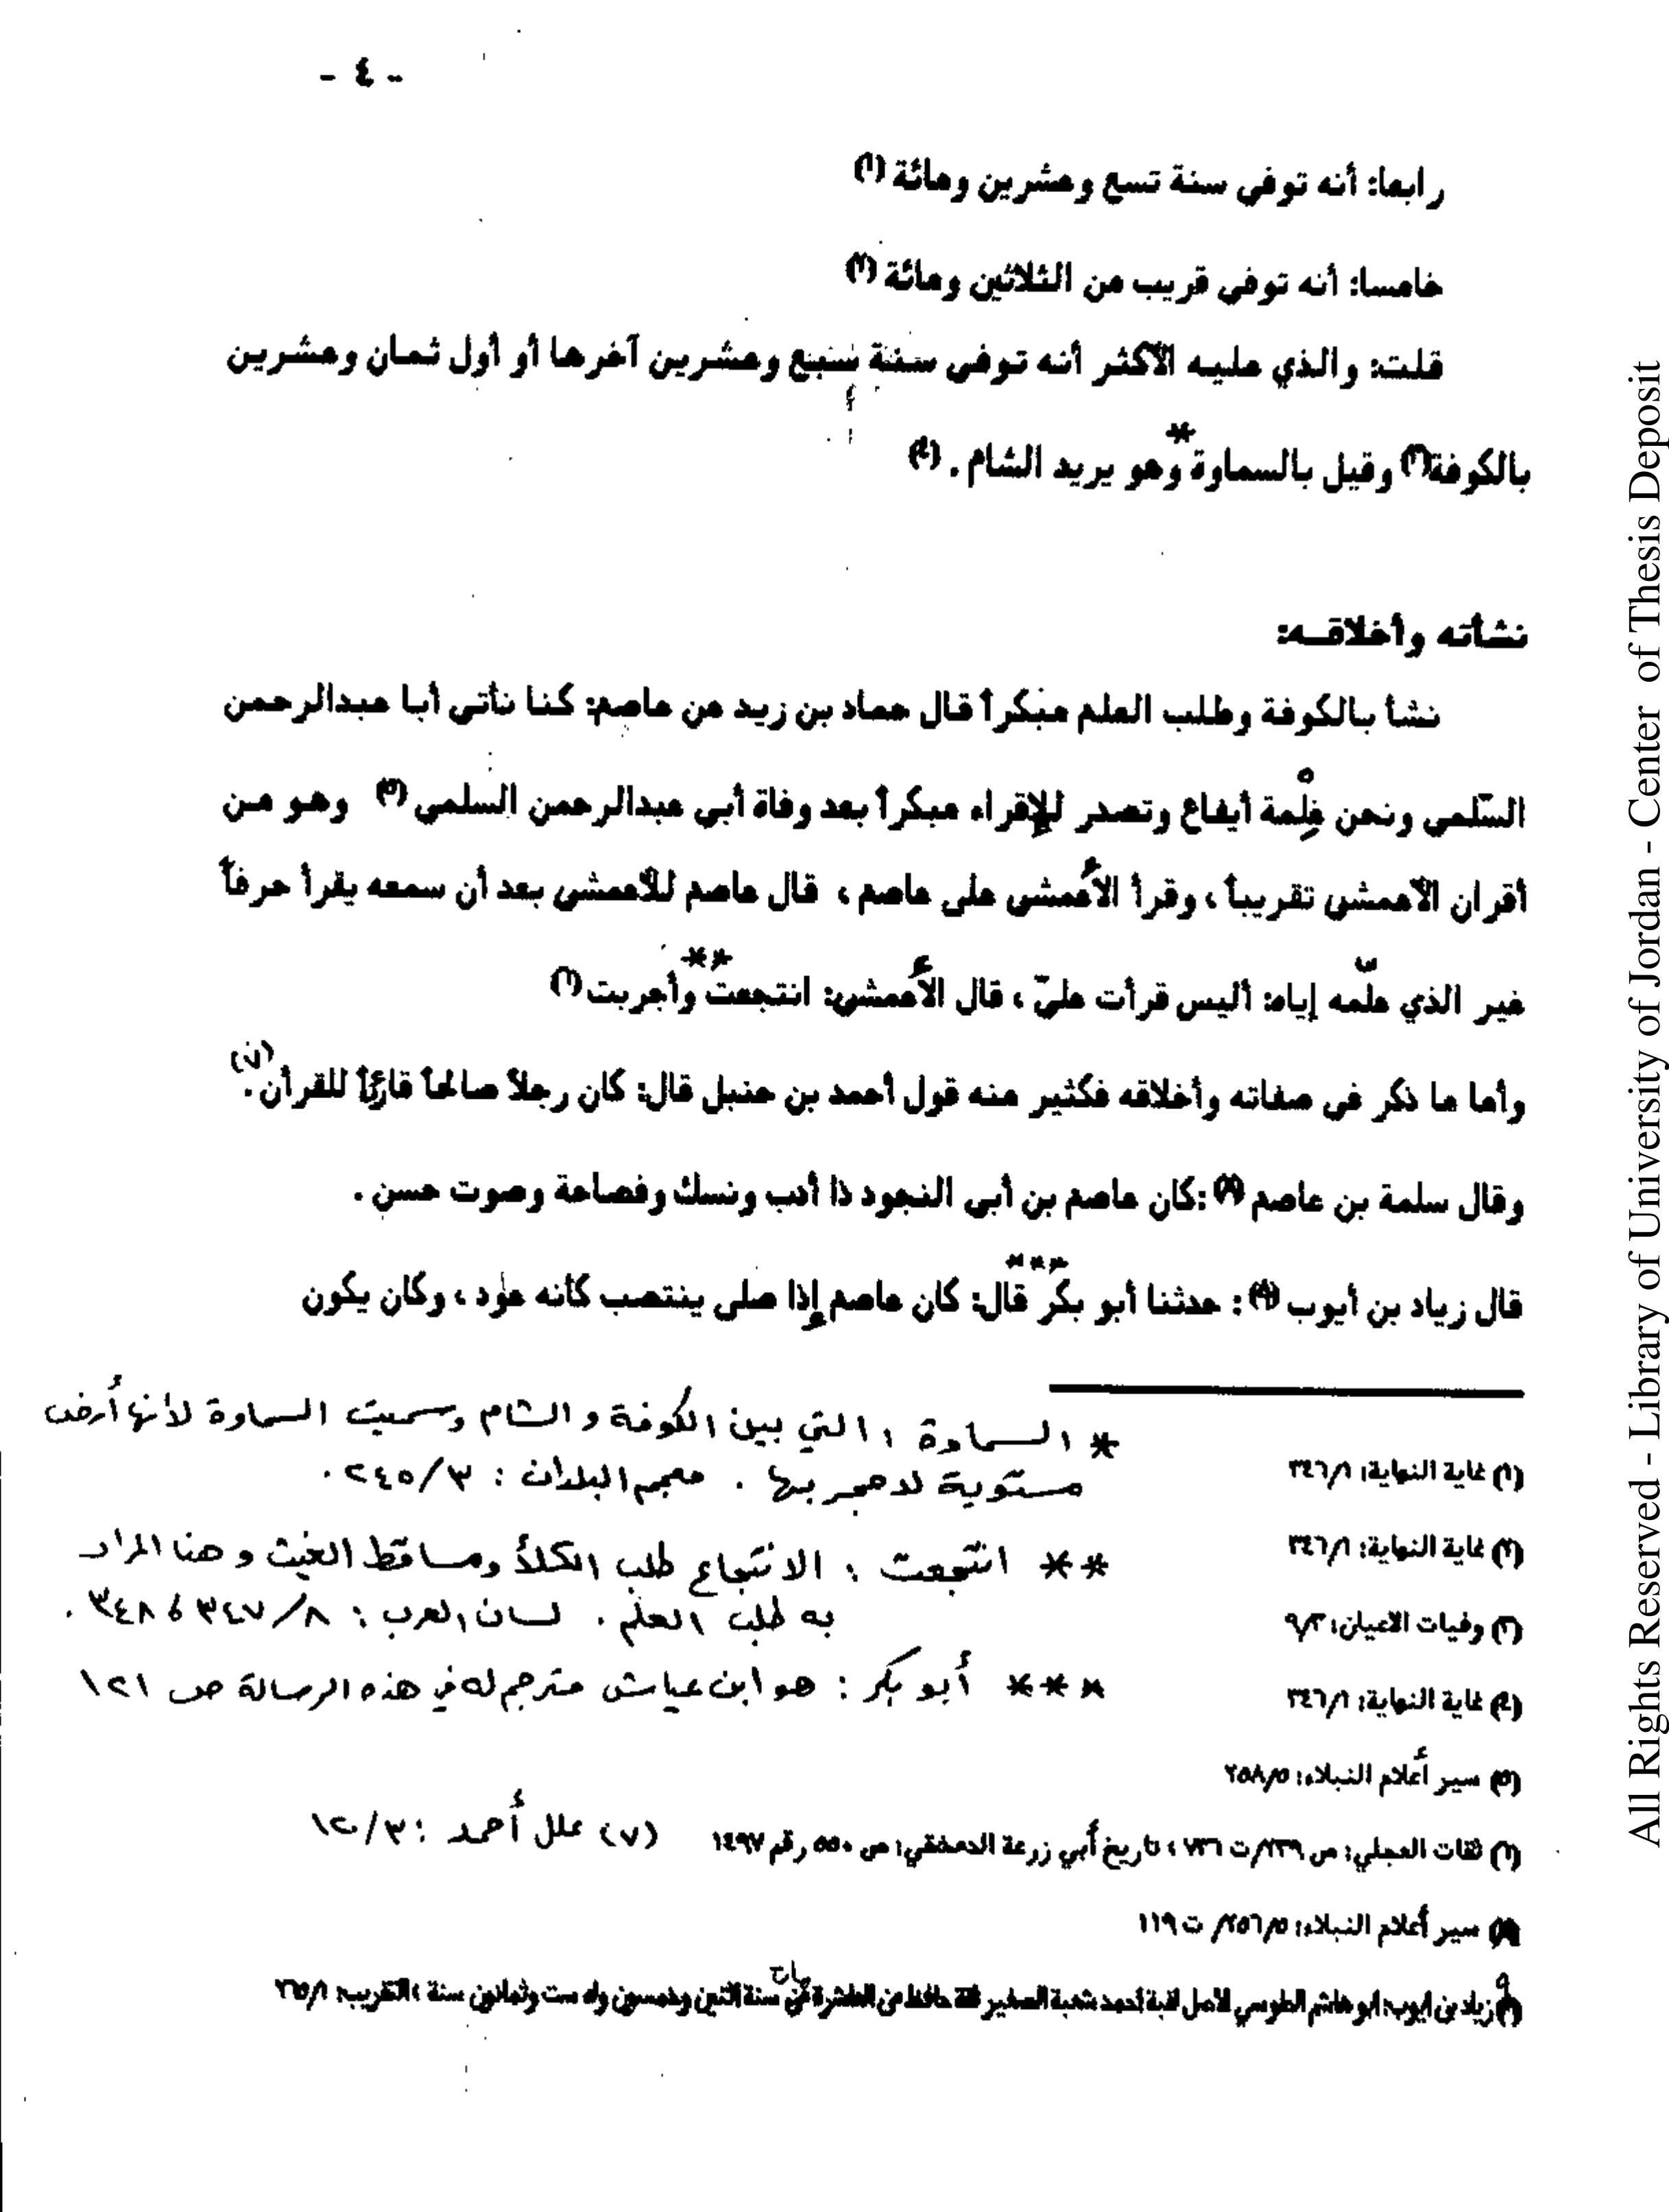 - ٤ -
رابعا: أنه توفي سنة تسع وعشرين ومائة (١)
خامسا: أنه توفي قريب من الثلاثين ومائة (٢)
قلت: والذي عليه الأكثر أنه توفى سنة سبع وعشرين آخرها أو أول ثمان وعشرين
بالكوفة(٣) وقيل بالسماوة* وهو يريد الشام . (٤)
نشأته وأخلاقـه:
نشأ بالكوفة وطلب العلم مبكراً قال حماد بن زيد عن عاصم: كنا نأتي أبا عبدالرحمن
السّلمي ونحن غِلْمة أيفاع وتصدر للإقراء مبكراً بعد وفاة أبي عبدالرحمن السلمي (٥) وهو من
أقران الأعمشى تقريباً ، وقرأ الأعمشى على عاصم ، قال عاصم للأعمشى بعد أن سمعه يقرأ حرفاً
غير الذي علّمه إياه: أليس قرأت عليّ ، قال الأعمشى: انتجعت** وأجربت (٦)
وأما ما ذكر في صفاته وأخلاقه فكثير منه قول أحمد بن حنبل قال: كان رجلاً صالحاً قارئاً للقرآن . (٧)
وقال سلمة بن عاصم (٨) :كان عاصم بن أبي النجود ذا أدب ونسك وفصاحة وصوت حسن .
قال زياد بن أيوب (٩) : حدثنا أبو بكر*** قال: كان عاصم إذا صلى ينتصب كأنه عود ، وكان يكون
* السماوة : التي بين الكوفة و الشام وسميت السماوة لأنها أرض
مستوية لا حجر بها . معجم البلدان : ٢٤٥/٣ .
** انتجعت : الانتجاع طلب الكلأ ومساقط الغيث و هنا المراد
به طلب العلم . لسان العرب : ٣٤٧/٨ ، ٣٤٨ .
*** أبو بكر : هو ابن عياش مترجم له في هذه الرسالة ص ١٢١
(١) غاية النهاية: ٣٤٦/١
(٢) غاية النهاية: ٣٤٦/١
(٣) وفيات الاعيان: ٩/٣
(٤) غاية النهاية: ٣٤٦/١
(٥) سير أعلام النبلاء: ٢٥٨/٥
(٦) ثقات العجلي: ص ٢٣٩/ت ٧٣٦ ، تاريخ أبي زرعة الدمشقي: ص ٥٥٠ رقم ١٤٩٧ (٧) علل أحمد : ١٢٠/٣
(٨) سير أعلام النبلاء: ٢٥٦/٥/ ت ١١٩
(٩) زياد بن ايوب: ابو هاشم الطوسي الأصل لقبة أحمد شعبة الصغير ثقة حافظ من العاشرة مات سنة اثنين وخمسين وله ست وثمانون سنة ، التقريب: ٢٦٥/١
All Rights Reserved - Library of University of Jordan - Center of Thesis Deposit